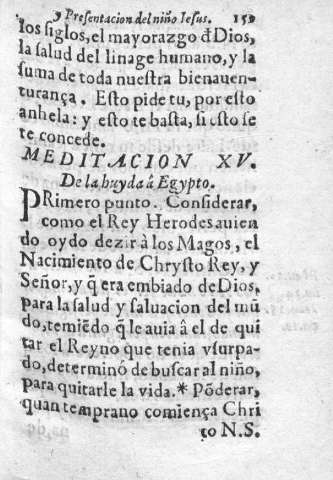 y Presentacion del niño Iesus. 159
los siglos, el mayorazgo đ Dios,
la salud del linage humano, y la
suma de toda nuestra bienauen-
turança. Esto pide tu, por esto
anhela: y esto te basta, si esto se
te concede.
MEDITACION XV.
De la huyda â Egypto.
PRimero punto. Considerar,
como el Rey Herodes auien
do oydo dezir à los Magos, el
Nacimiento de Chrysto Rey, y
Señor, y q̃ era embiado de Dios,
para la salud y saluacion del mũ
do, temiẽdo q̃ le auia â el de qui
tar el Reyno que tenia vsurpa-
do, determinó de buscar al niño,
para quitarle la vida.* Põderar,
quan temprano comiença Chri
to N.S.